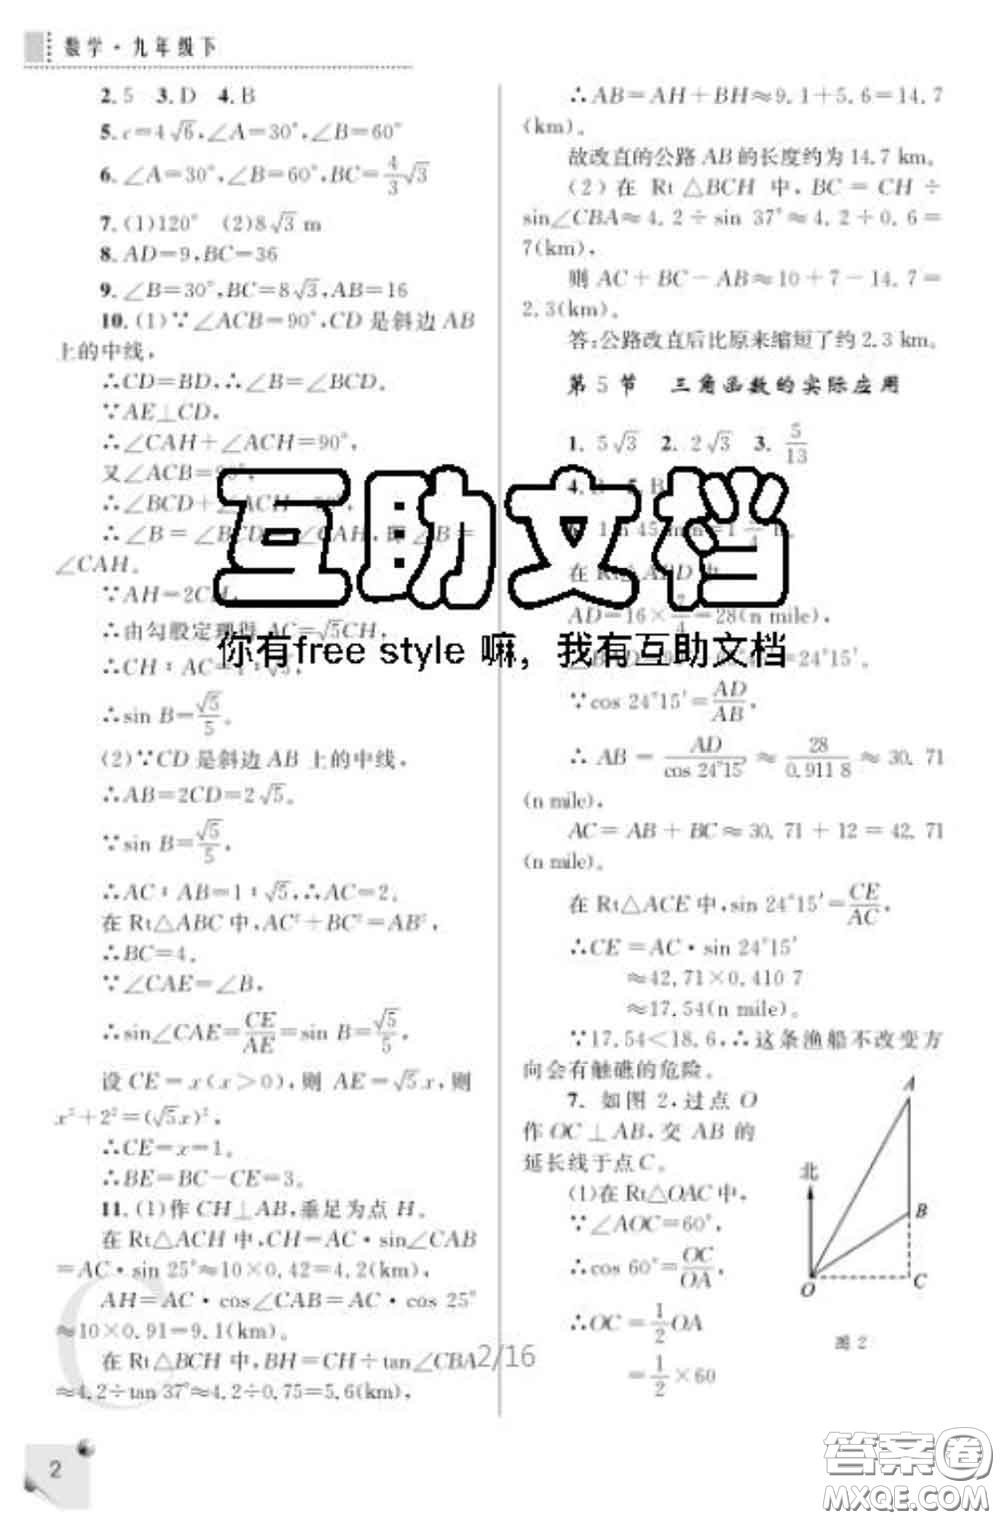 数学·九年级下
2.5 3.D 4.B
5.c=4√6,∠A=30°,∠B=60°
6.∠A=30°,∠B=60°,BC=4/3√3
7.(1)120° (2)8√3 m
8.AD=9,BC=36
9.∠B=30°,BC=8√3,AB=16
10.(1)∵∠ACB=90°,CD是斜边AB
上的中线,
∴CD=BD,∴∠B=∠BCD。
∵AE⊥CD,
∴∠CAH+∠ACH=90°,
又∠ACB=90°,
∴∠BCD+∠ACH=90°,
∴∠B=∠BCD=∠CAH,即∠B=
∠CAH。
∵AH=2CH,
∴由勾股定理得AC=√5CH,
∴CH:AC=1:√5,
∴sin B=√5/5。
(2)∵CD是斜边AB上的中线,
∴AB=2CD=2√5。
∵sin B=√5/5,
∴AC:AB=1:√5,∴AC=2。
在Rt△ABC中,AC²+BC²=AB²,
∴BC=4。
∵∠CAE=∠B,
∴sin∠CAE=CE/AE=sin B=√5/5。
设CE=x(x>0),则AE=√5x,则
x²+2²=(√5x)²,
∴CE=x=1。
∴BE=BC-CE=3。
11.(1)作CH⊥AB,垂足为点H。
在Rt△ACH中,CH=AC·sin∠CAB
=AC·sin 25°≈10×0.42=4.2(km),
AH=AC·cos∠CAB=AC·cos 25°
≈10×0.91=9.1(km)。
在Rt△BCH中,BH=CH÷tan∠CBA
≈4.2÷tan 37°≈4.2÷0.75=5.6(km),
∴AB=AH+BH≈9.1+5.6=14.7
(km)。
故改直的公路AB的长度约为14.7 km。
(2)在Rt△BCH中,BC=CH÷
sin∠CBA≈4.2÷sin 37°≈4.2÷0.6=
7(km),
则AC+BC-AB≈10+7-14.7=
2.3(km)。
答:公路改直后比原来缩短了约2.3 km。
第5节 三角函数的实际应用
1.5√3 2.2√3 3.5/13
4.B 5.B
1 h 45 min=1 3/4 h。
在Rt△ABD中,
AD=16×7/4=28(n mile),
=24°15′。
∵cos 24°15′=AD/AB,
∴AB=AD/cos 24°15′≈28/0.911 8≈30.71
(n mile),
AC=AB+BC≈30.71+12=42.71
(n mile)。
在Rt△ACE中,sin 24°15′=CE/AC,
∴CE=AC·sin 24°15′
≈42.71×0.410 7
≈17.54(n mile)。
∵17.54<18.6,∴这条渔船不改变方
向会有触礁的危险。
7.如图2,过点O
作OC⊥AB,交AB的
延长线于点C。
(1)在Rt△OAC中,
∵∠AOC=60°,
∴cos 60°=OC/OA,
∴OC=1/2OA
=1/2×60
A
北
B
O
C
图2
互助文档
你有free style 嘛,我有互助文档
2/16
2
答案圈
MXQE.COM